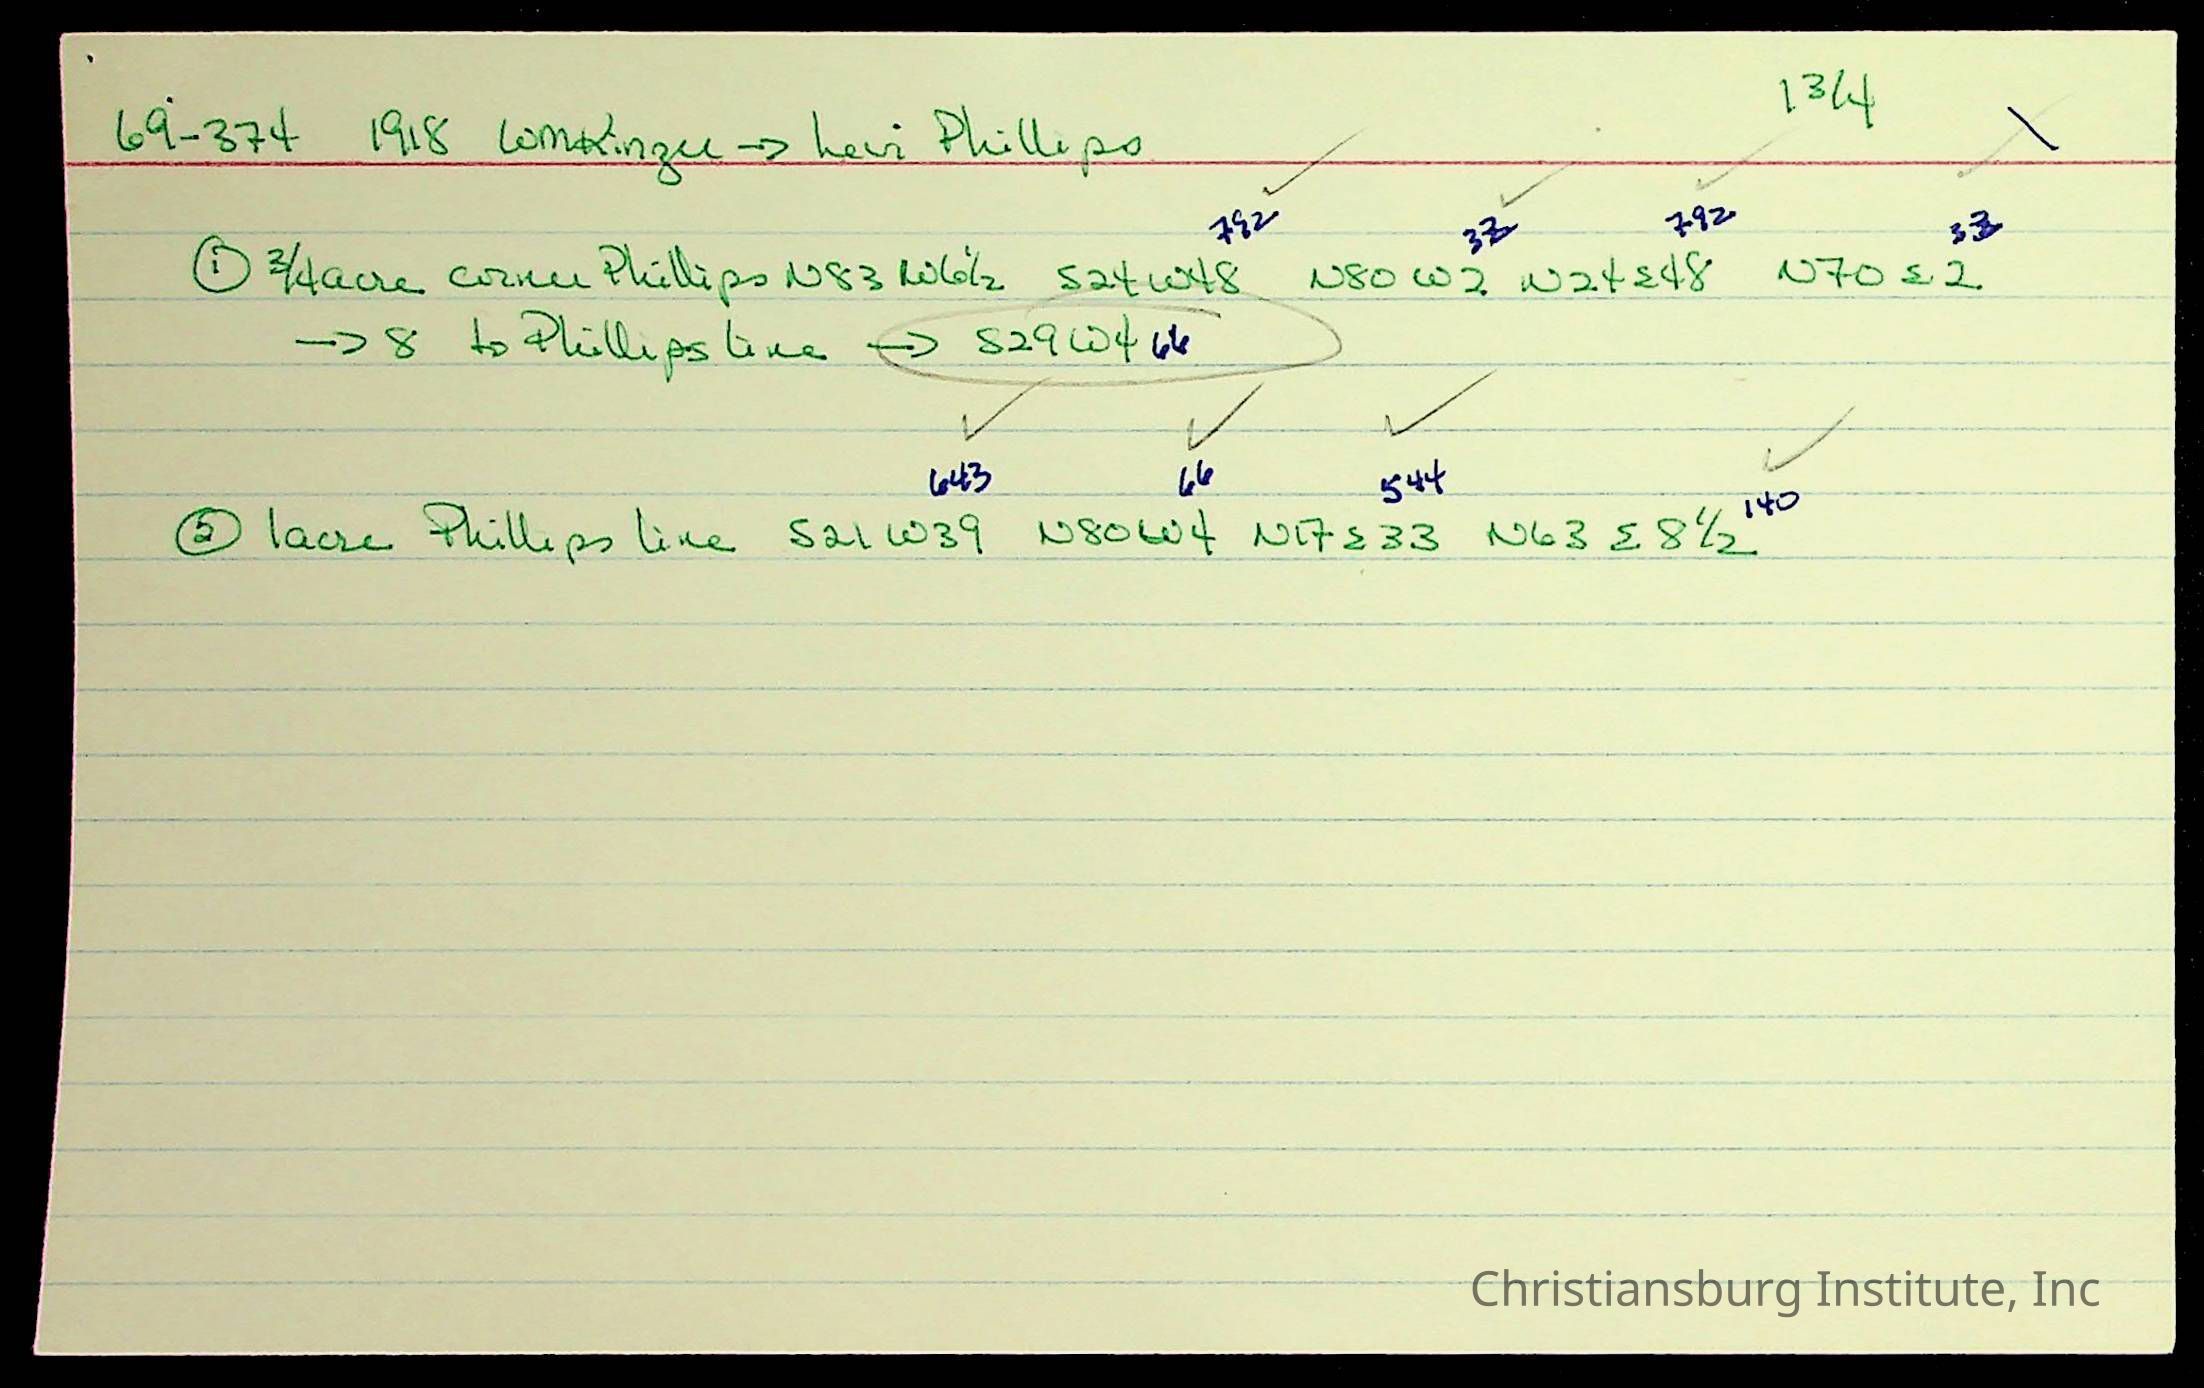 1 3/4
69-374 1918 Wm Kinzer → Levi Phillips
792 33 792 33
① 3/4 acre corner Phillips N83 W6½ S24W48 N80 W2 N24E48 N70 E2
→ 8 to Phillips line → S29W4 66
643 66 544 140
② 1acre Phillips line S21 W39 N80W4 N17E33 N63 E8½
Christiansburg Institute, Inc